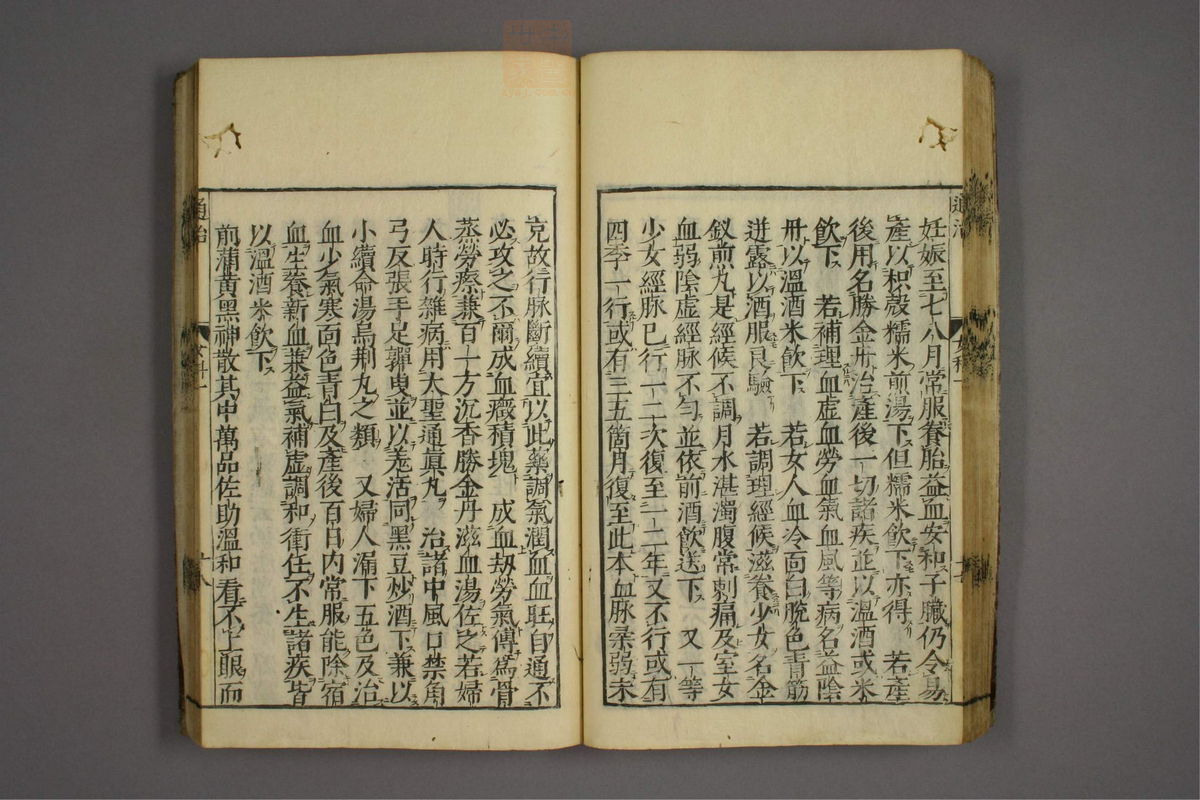 妊娠至七八月常服養胎益血安和子臟仍令易
產以枳殼糯米煎湯下但糯米飲下亦得　若產
後用名勝金丹治產後一切諸疾並以溫酒或米
飲下　若補理血虛血勞血氣血風等病名益陰
丹以溫酒米飲下　若女人血冷面白脫色青筋
迸露以酒服良驗　若調理經候滋養少女名金
釵煎丸是經候不調月水湛濁腹常刺痛及室女
血弱陰虛經脉不勻並依前酒飲送下　又一等
少女經脉已行一二次復至一二年又不行或有
四季一行或有三五箇月復至此本血脉柔弱未
克故行脉斷續宜以此藥調氣潤血血旺自通不
必攻之不爾成血癥積塊　成血劫勞氣傳爲骨
蒸勞瘵兼百一方沉香勝金丹滋血湯佐之若婦
人時行雜病用大聖通真丸　治諸中風口禁角
弓反張手足嚲曳並以羗活同黑豆炒酒下兼以
小續命湯烏荆丸之類　又婦人漏下五色及治
血少氣寒面色青白及產後百日内常服能除宿
血生養新血兼益氣補虛調和衝任不生諸疾皆
以溫酒米飲下
前蒲黃黑神散其中萬品佐助溫和看不上眼而
通治
女科一
十八